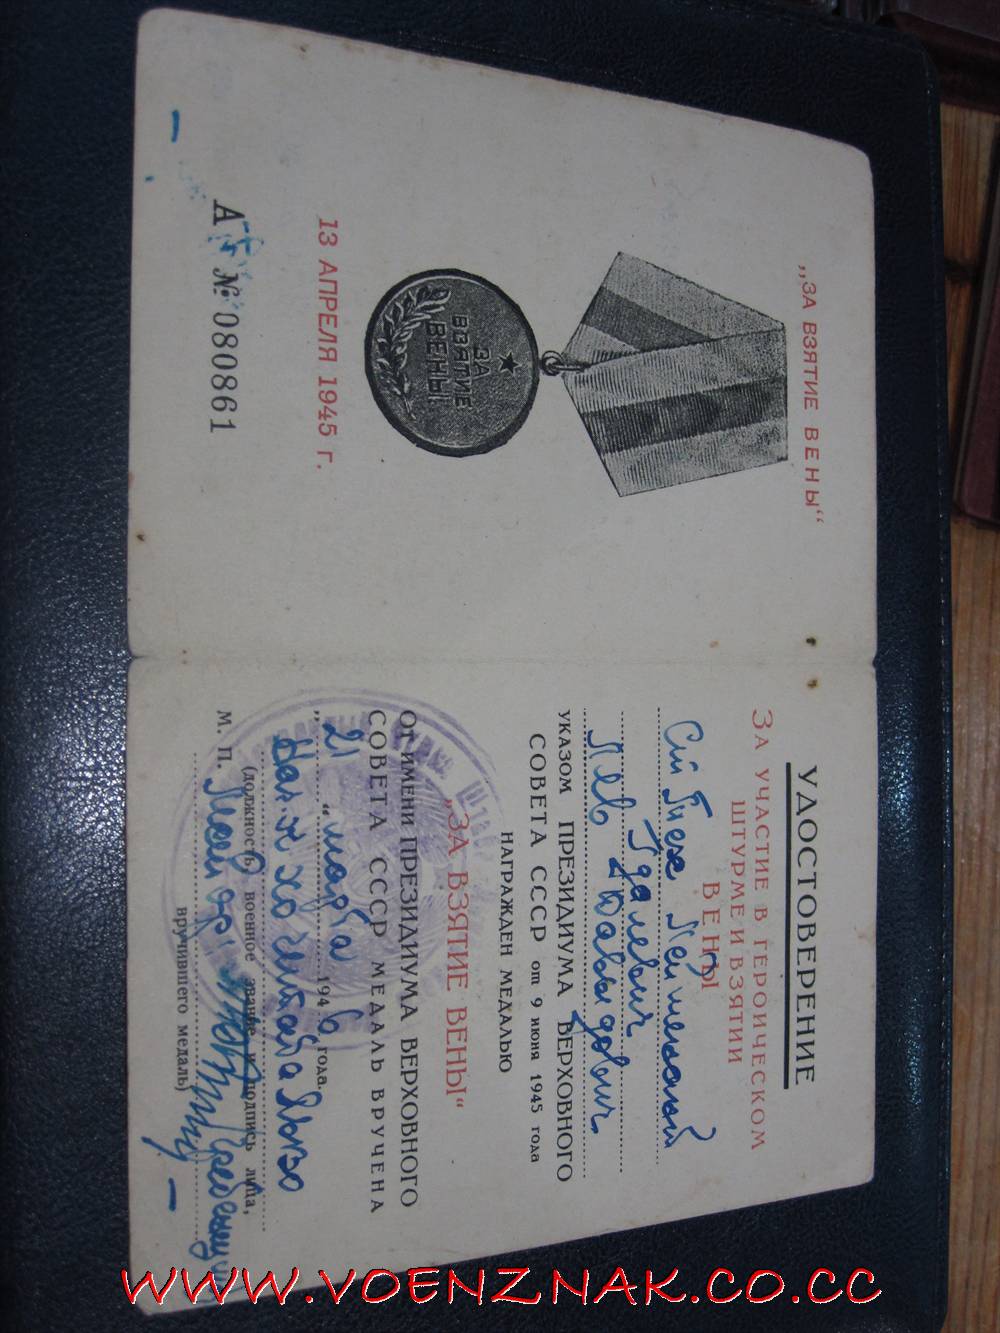 „ЗА ВЗЯТИЕ ВЕНЫ“
ЗА
ВЗЯТИЕ
ВЕНЫ
13 АПРЕЛЯ 1945 г.
А № 080861
УДОСТОВЕРЕНИЕ
ЗА УЧАСТИЕ В ГЕРОИЧЕСКОМ
ШТУРМЕ И ВЗЯТИИ
ВЕНЫ
Лейтенант
Гдалевич
Лев Давыдович
УКАЗОМ ПРЕЗИДИУМА ВЕРХОВНОГО
СОВЕТА СССР от 9 июня 1945 года
НАГРАЖДЕН МЕДАЛЬЮ
„ЗА ВЗЯТИЕ ВЕНЫ“
ОТ ИМЕНИ ПРЕЗИДИУМА ВЕРХОВНОГО
СОВЕТА СССР МЕДАЛЬ ВРУЧЕНА
„21“ марта 1946 года.
(должность, военное звание и подпись лица,
М. П.
вручившего медаль)
WWW.VOENZNAK.CO.CC